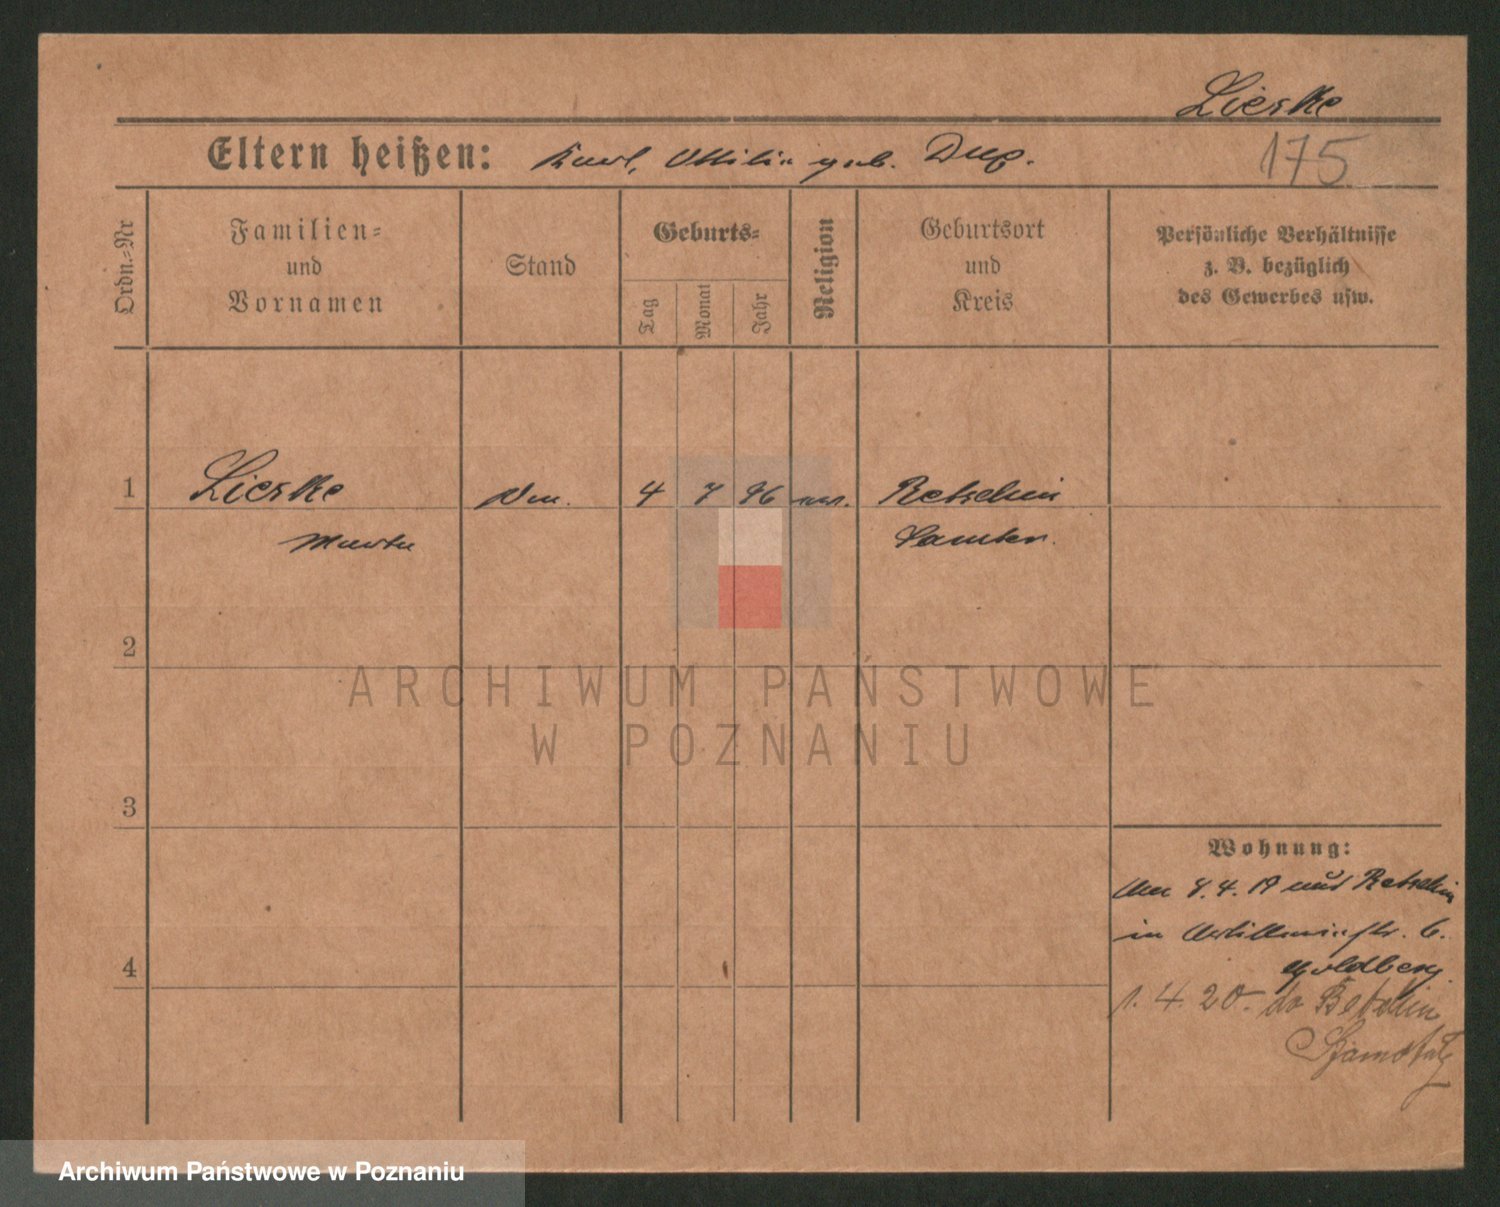 Lieske
Eltern heißen: Karl, Ottilie geb.
175
Ordn.-Nr
Familien-
und
Vornamen
Stand
Geburts-
Tag
Monat
Jahr
Religion
Geburtsort
und
Kreis
Persönliche Verhältnisse
z. B. bezüglich
des Gewerbes usw.
1 Lieske 4 7 96 Retschin
Samter.
2
ARCHIWUM PAŃSTWOWE
W POZNANIU
3
Wohnung:
4. 19 aus Retschin
in Artilleriestr. 6.
4
Goldberg
1. 4. 20.
Archiwum Państwowe w Poznaniu